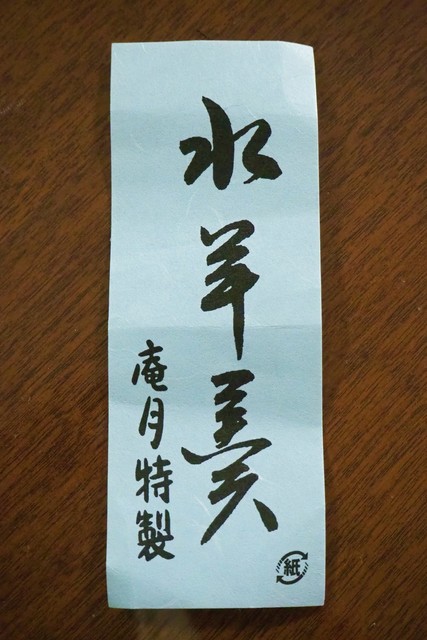 水羊羹
庵月特製
紙